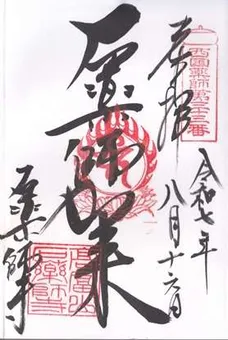 西国薬師第三十三番
奉拝
令和七年
八月十六日
石薬師如来
石薬師寺